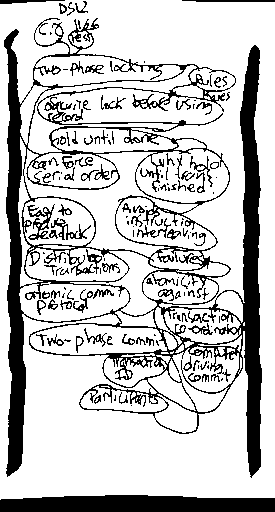 DSL2
C.2
Test
Two-phase locking
Rules
acquire lock before using
record
hold until done
can force
serial order
Why hold
until trans
finished
Easy to
produce
deadlock
Avoids
instruction
interleaving
Distributed
Transactions
failures
atomic commit
protocol
atomicity
against
Transaction
co-ordinator
Two-phase commit
computer
driving
commit
Transaction
ID
Participants